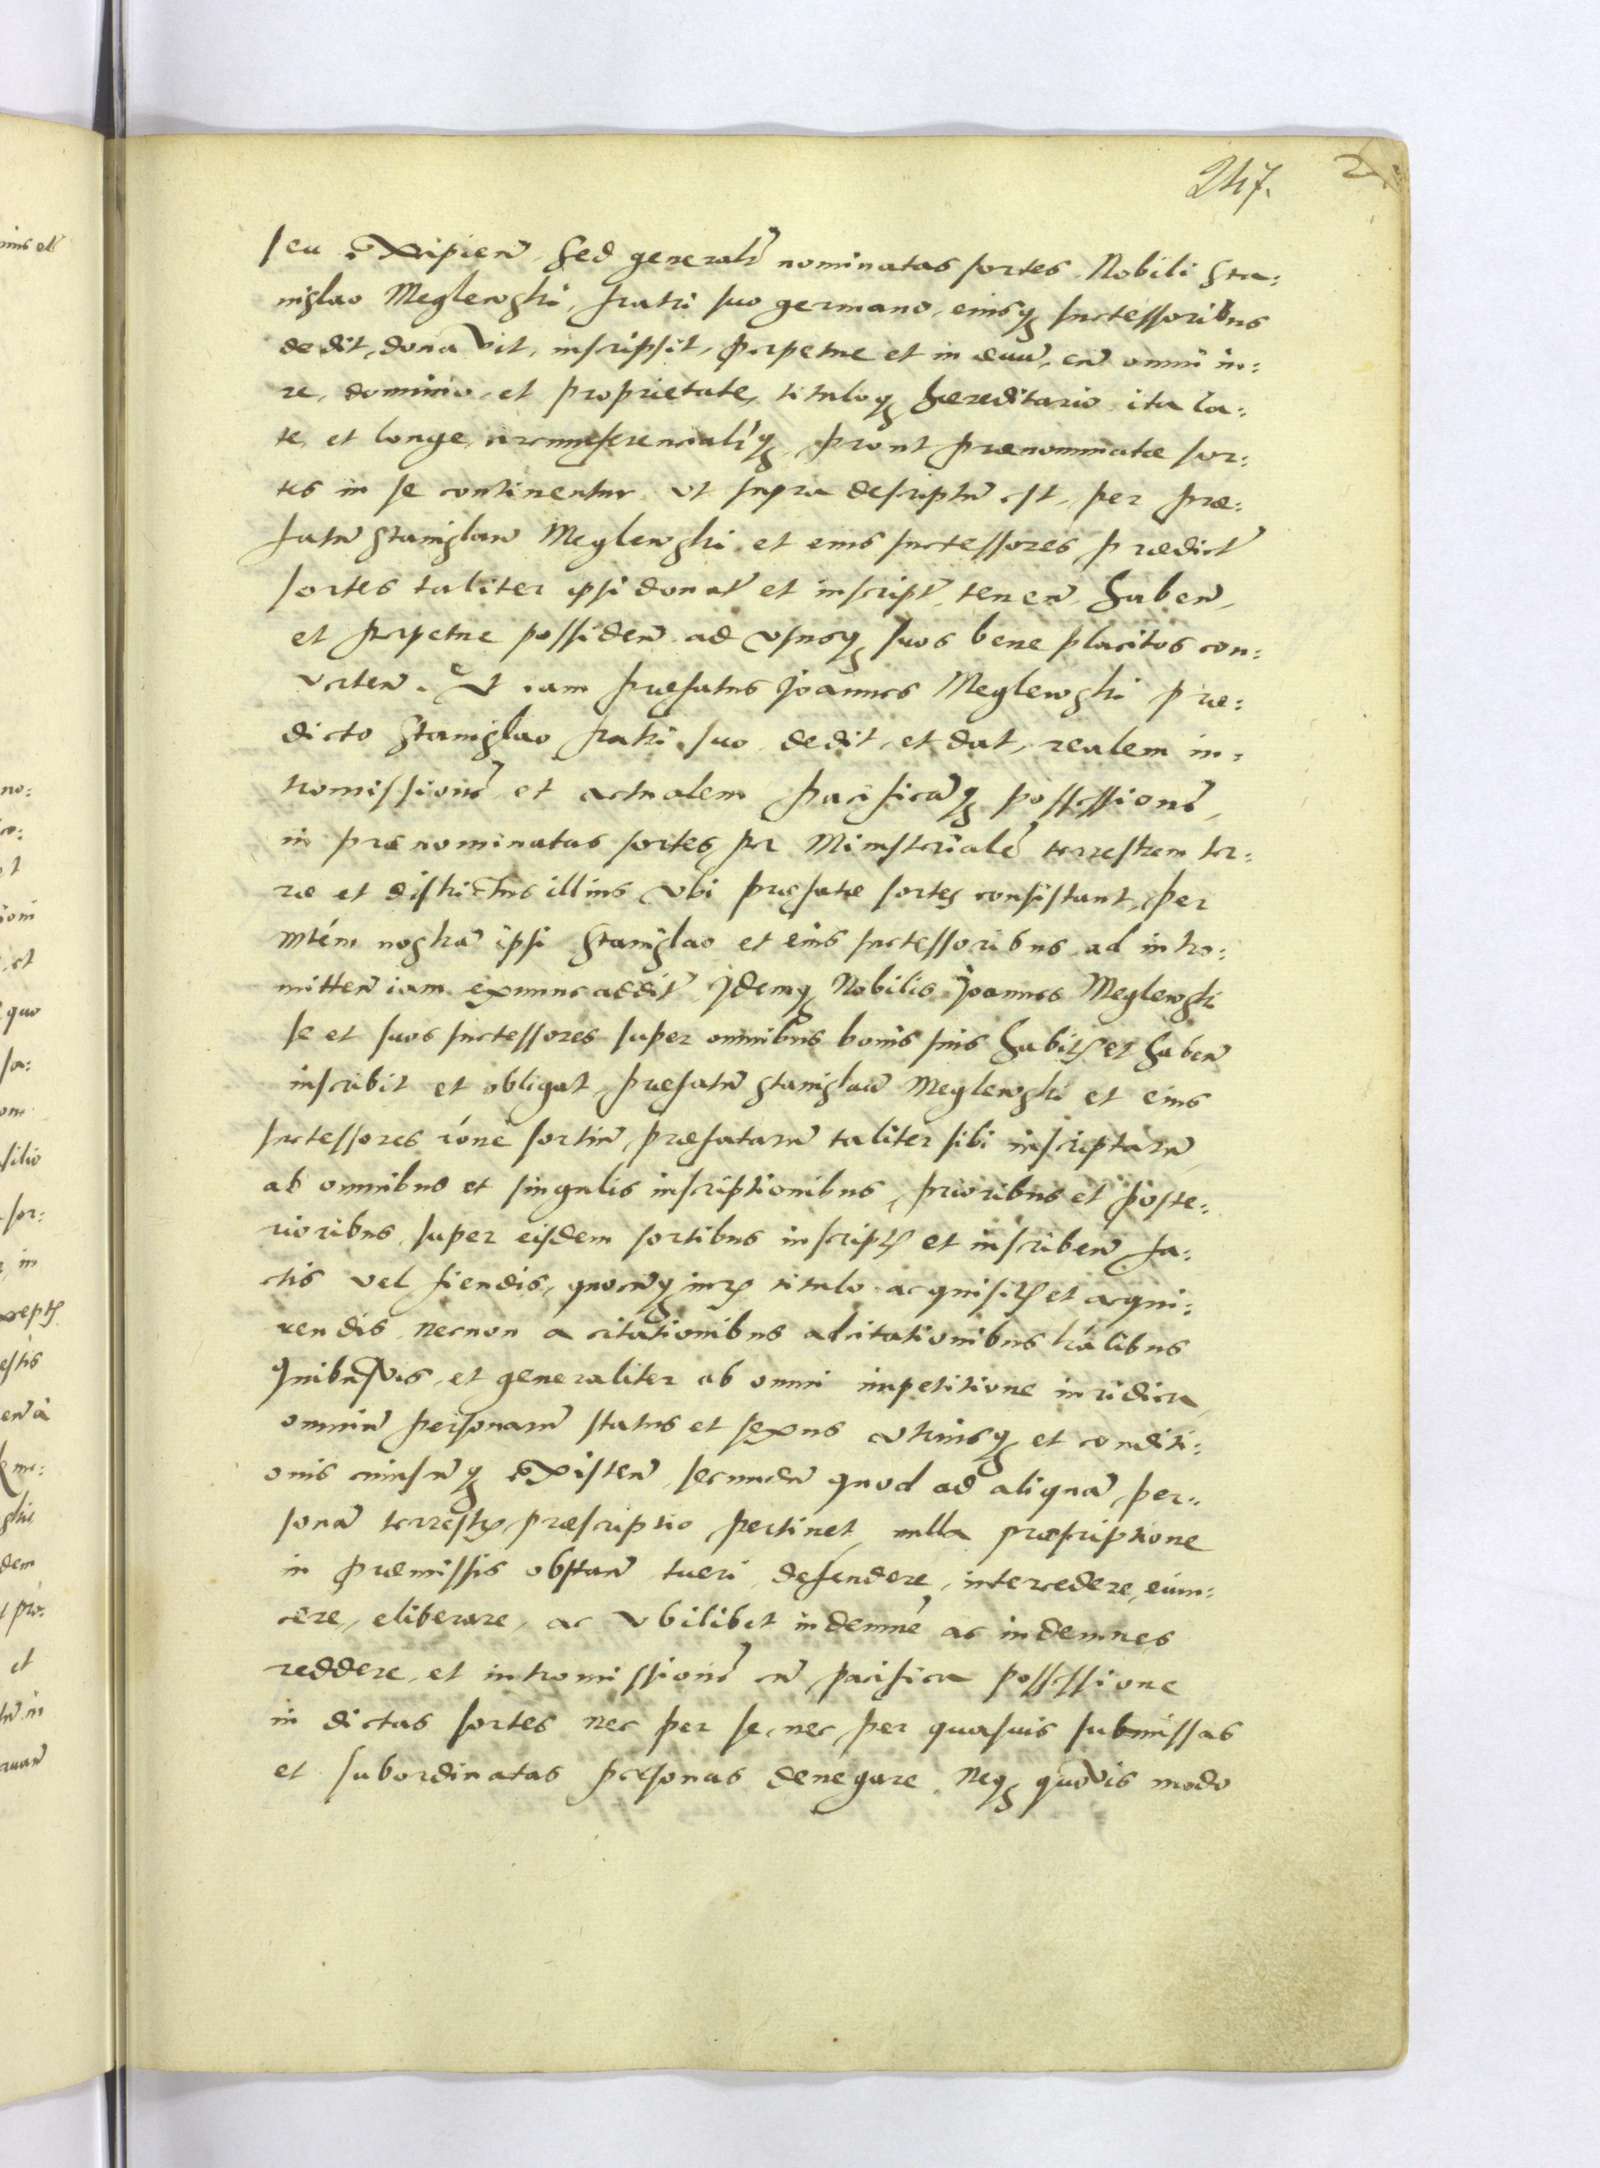 247.
seu excipien̄ Sed generalr̄ nominatas sortes Nobili Sta:
nislao Meglewski, fratri suo germano, eiusq; successoribus
dedit, donavit, inscripsit, perpetue et in ævū, cū omni iu:
re, dominio, et proprietate, tituloq; hæreditario ita la:
te, et longe, circumferencialr̄q;, pront prænominatæ sor:
tes in se continentur ut supra descriptū est, per præ:
fatū Stanislaū Meglewski et eius successores prædict̄
sortes taliter ipsi donat̄ et inscript̄, tenen̄, haben̄,
et perpetue possiden̄ ad ususq; suos bene placitos con:
verten̄. Et iam præfatus Joannes Meglewski præ:
dicto Stanislao fratri suo dedit, et dat, realem in:
tromissionē et actualem pacificāq; possessionē,
in prænominatas sortes per Ministerialē terrestrem ter:
ræ et districtus illius ubi præfatæ sortes consistant, per
mtém nostrā ipsi Stanislao et eius successoribus ad intro:
mitten̄ iam exnunc addit̄ Idemq; Nobilis Joannes Meglewski
se et suos successores super omnibus bonis suis habitis et haben̄
inscribit et obligat, præfatū Stanislaū Meglewski et eius
successores róne sortiū præfatarū taliter sibi inscriptarū,
ab omnibus et singulis inscriptionibus, prioribus et poste:
rioribus super eisdem sortibus inscriptis et inscriben̄ fa:
ctis vel fiendis, quocūq; iuris titulo acquisitis et acqui:
rendis necnon a citationibus adcitationibus trálibus
quibusvis, et generaliter ab omni impetitione iuridica,
omniū personarū status et sexus utriusq; et conditi:
onis cuiuscūq; existen̄ secundū quod ad aliquā per:
sonā terrestris præscriptio pertinet, nulla præscriptione
in præmissis obstan̄ tueri, defendere, intercedere, evin:
cere, eliberare, ac ubilibet indemnē ac indemnes
reddere, et intromissionē cū pacifica possessione
in dictas sortes nec per se, nec per quasuis submissas
et subordinatas personas denegare. Neq; quovis modo